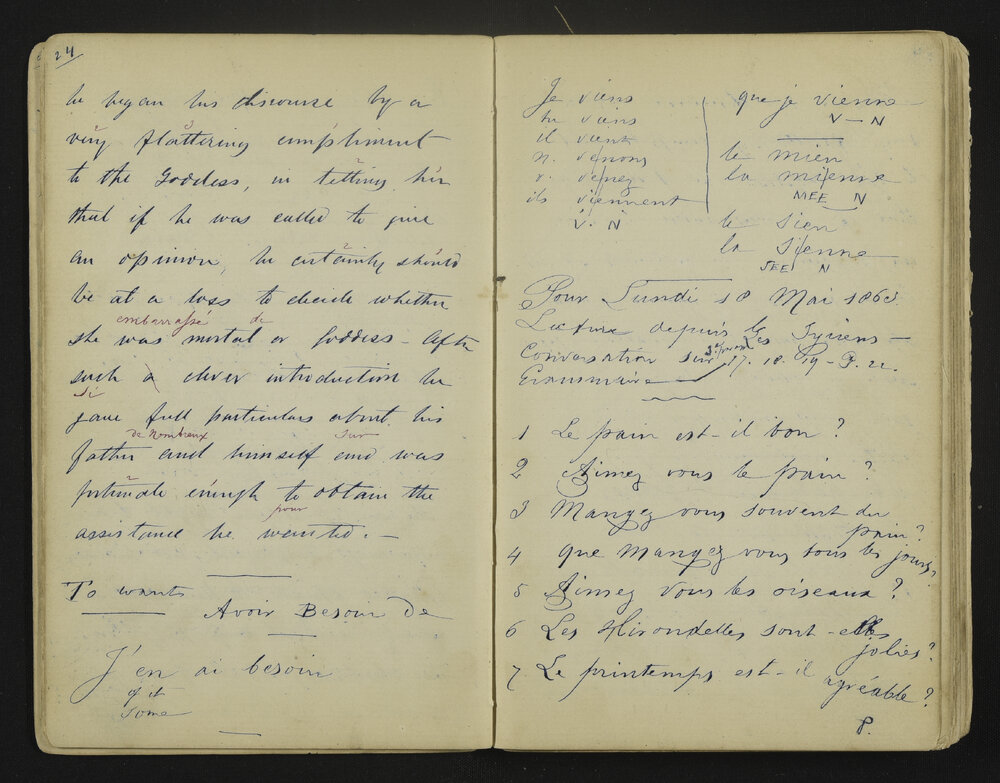 24
he began his discourse by a
very flattering compliment
to the Goddess, in telling her
that if he was called to give
an opinion, he certainly should
be at a loss to decide whether
embarrassé de
she was mortal or Goddess - After
such a clever introduction he
si
gave full particulars about his
de nombreux sur
father and himself and was
fortunate enough to obtain the
pour
assistance he wanted. -
To want
Avoir Besoin de
J'en ai besoin
of it
some
Je viens
tu viens
il vient
n. venons
v. venez
ils viennent
V. N
que je vienne
V - N
le mien
la mienne
MEE N
le sien
la sienne
SEE N
Pour Lundi 18 Mai 1868
Lecture depuis les Tyriens -
Conversation sur 17. 18. 19 - P. 22.
Grammaire
1 Le pain est-il bon ?
2 Aimez vous le pain ?
3 Mangez vous souvent du
pain ?
4 que Mangez vous tous les jours ?
5 Aimez vous les oiseaux ?
6 Les Hirondelles sont-elles
jolies ?
7 Le printemps est-il
agréable ?
8.